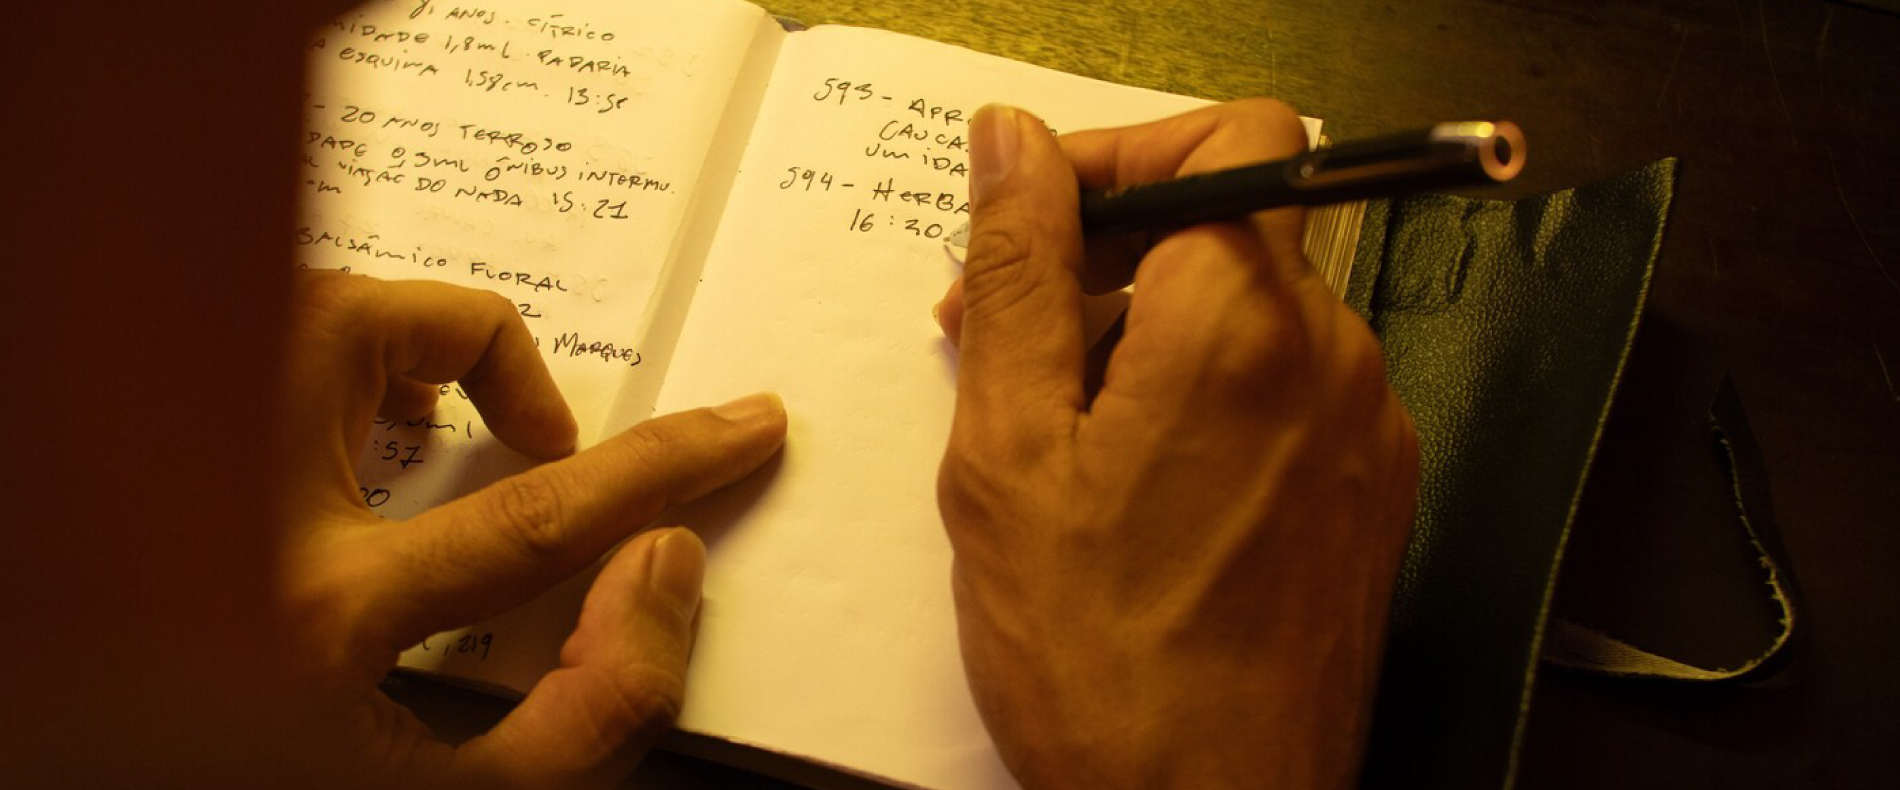 81 ANOS. CÍTRICO
MIDADE 1,8ml. PADARIA
A ESQUINA 1,58cm. 13:58
- 20 ANOS TERROSO
DADE 0,3ml ÔNIBUS INTERMU.
VIAÇÃO DO NADA 15:21
m
BALSÂMICO FLORAL
2
MARQUES
:57
00
,219
593 - APR
CAUCA
UMIDA
594 - HERBA
16:30